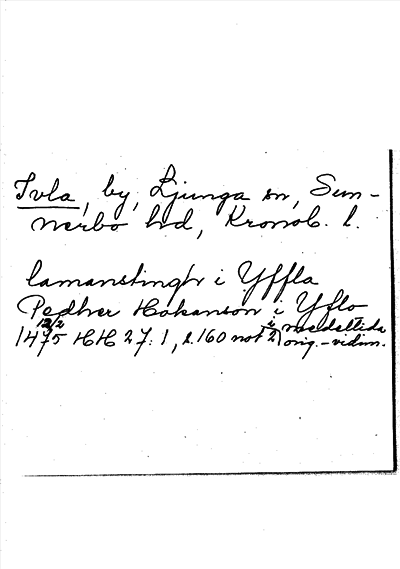 Ivla, by, Ljunga sn, Sun-
nerbo hd, Kronob. l.
lamanstingh i Yffla
Pedher Hakanson i Yflo
12/2 i medeltida
1475 HH 27:1, s. 160 not 2) orig.-vidim.